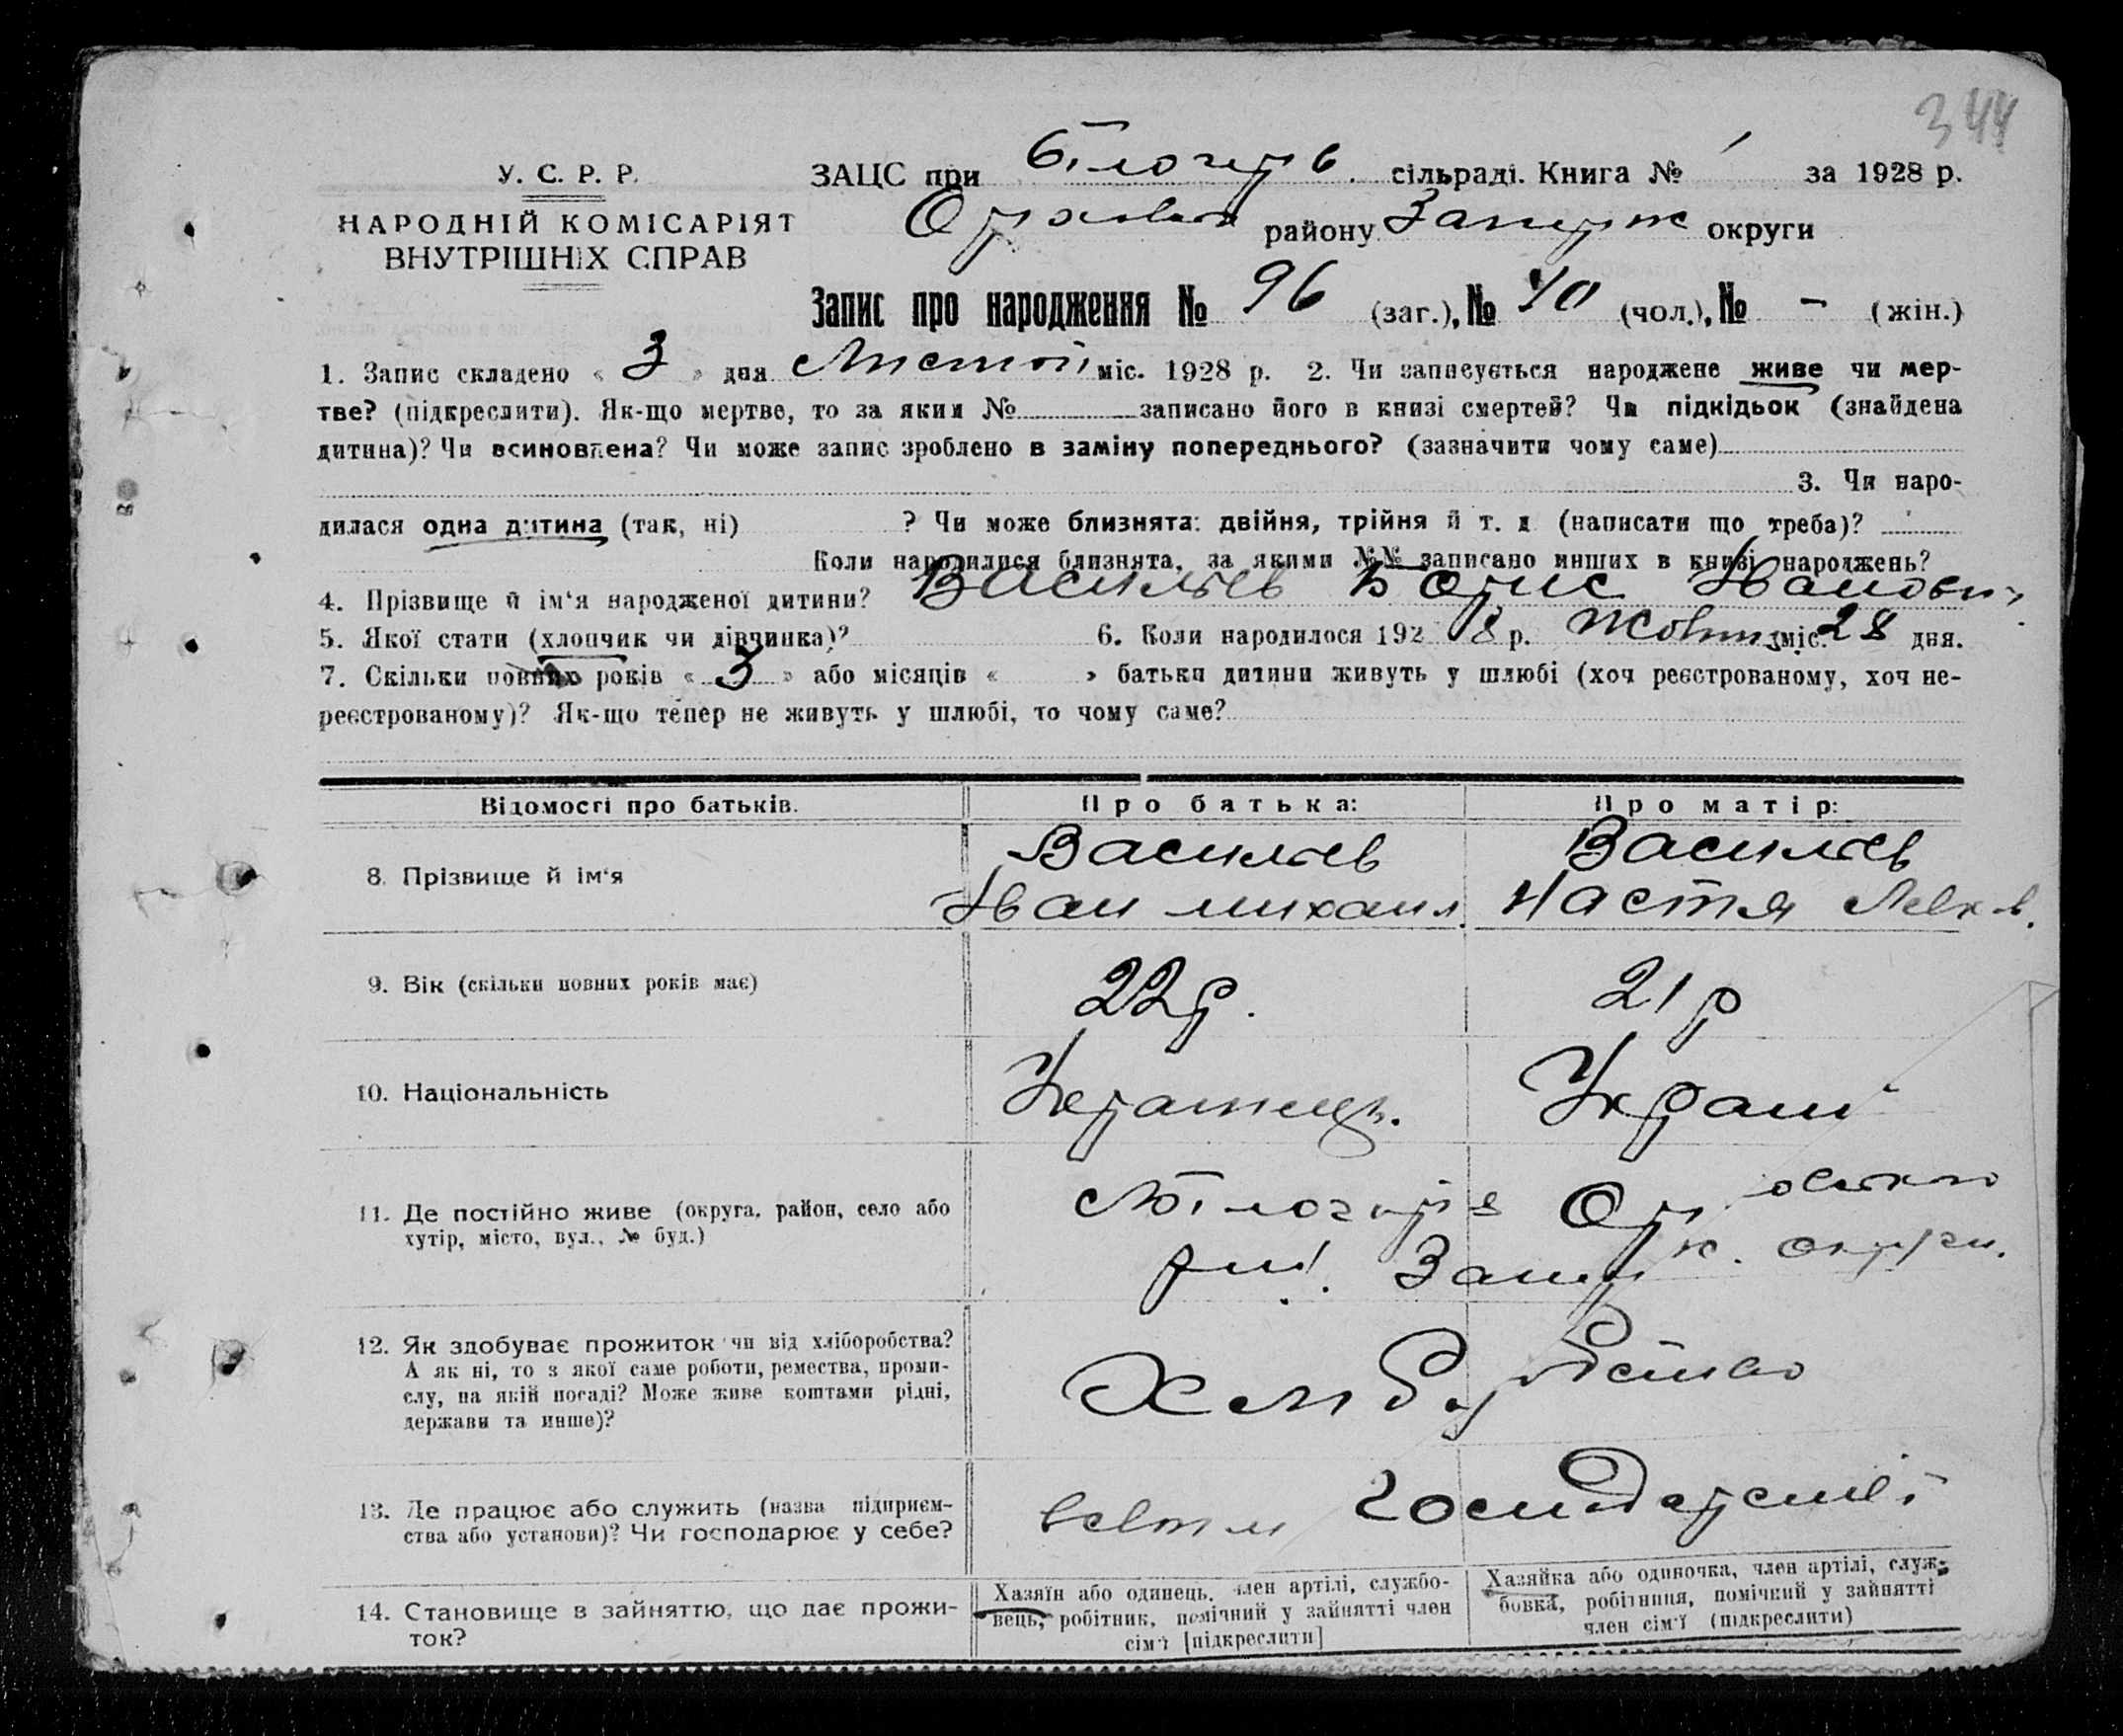 344
У. С. Р. Р.
НАРОДНІЙ КОМІСАРІЯТ
ВНУТРІШНІХ СПРАВ
ЗАЦС при Білогирів. сільраді. Книга № 1 за 1928 р.
району Запоріж округи
Запис про народження № 96 (заг.), № 40 (чол.), № – (жін.)
1. Запис складено « 3 » дня Листоп міс. 1928 р. 2. Чи записується народжене живе чи мер-
тве? (підкреслити). Як-що мертве, то за яким № записано його в книзі смертей? Чи підкідьок (знайдена
дитина)? Чи всиновлена? Чи може запис зроблено в заміну попереднього? (зазначити чому саме)
3. Чи наро-
дилася одна дитина (так, ні) ? Чи може близнята: двійня, трійня й т. д. (написати що треба)?
Коли народилися близнята, за якими №№ записано инших в книзі народжень?
4. Прізвище й ім'я народженої дитини? Васильєв Борис Іванович
5. Якої стати (хлопчик чи дівчинка)? 6. Коли народилося 1928 р. Жовтня міс. 28 дня.
7. Скільки повних років « 3 » або місяців « » батьки дитини живуть у шлюбі (хоч реєстрованому, хоч не-
реєстрованому)? Як-що тепер не живуть у шлюбі, то чому саме?
Відомості про батьків. Про батька: Про матір:
8. Прізвище й ім'я
Васильєв
Іван михаил.
Васильєв
Настя
9. Вік (скільки повних років має) 22 р. 21 р
10. Національність Українець. Украї
11. Де постійно живе (округа, район, село або
хутір, місто, вул., № буд.)
Білогирів
округи.
12. Як здобуває прожиток чи від хліборобства?
А як ні, то з якої саме роботи, ремества, проми-
слу, на якій посаді? Може живе коштами рідні,
держави та инше)?
Хлиборобство
13. Де працює або служить (назва підприєм-
ства або установи)? Чи господарює у себе?
господарстві
14. Становище в зайняттю, що дає прожи-
ток?
Хазяїн або одинець, член артілі, службо-
вець, робітник, помічний у зайнятті член
сім'ї [підкреслити]
Хазяйка або одиночка, член артілі, служ-
бовка, робітниця, помічний у зайнятті
член сім'ї (підкреслити)